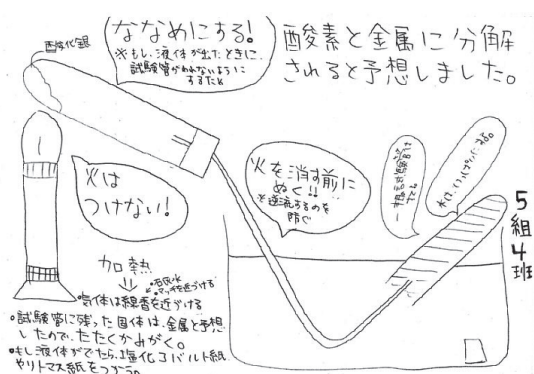 酸化銀
ななめにする!
※もし、液体が出たときに、
試験管がわれないように
するため
酸素と金属に分解
されると予想しました。
火は
つけない!
火を消す前に
ぬく!!
※逆流するのを
防ぐ
一本目の試験管は
すてる
水でいっぱいにする。
5組4班
加熱
↓
・石灰水
・マッチを近づける
・気体は線香を近づける
・試験管に残った固体は、金属と予想
したので、たたくかみがく。
・もし液体がでたら、塩化コバルト紙
やリトマス紙をつかう。